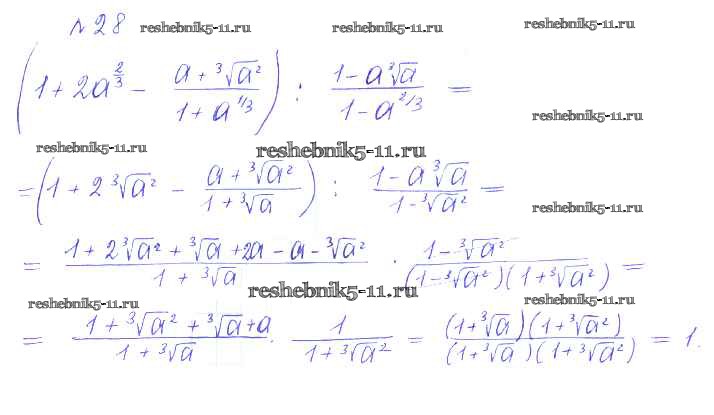 № 28 reshebnik5-11.ru reshebnik5-11.ru reshebnik5-11.ru
(1 + 2a^{2/3} - (a + ∛a²)/(1 + a^{1/3})) : (1 - a∛a)/(1 - a^{2/3}) =
reshebnik5-11.ru
reshebnik5-11.ru reshebnik5-11.ru
= (1 + 2∛a² - (a + ∛a²)/(1 + ∛a)) : (1 - a∛a)/(1 - ∛a²) =
reshebnik5-11.ru
= (1 + 2∛a² + ∛a + 2a - a - ∛a²)/(1 + ∛a) · (1 - ∛a²)/((1 - ∛a²)(1 + ∛a²)) =
reshebnik5-11.ru reshebnik5-11.ru reshebnik5-11.ru
= (1 + ∛a² + ∛a + a)/(1 + ∛a) · 1/(1 + ∛a²) = ((1 + ∛a)(1 + ∛a²))/((1 + ∛a)(1 + ∛a²)) = 1.